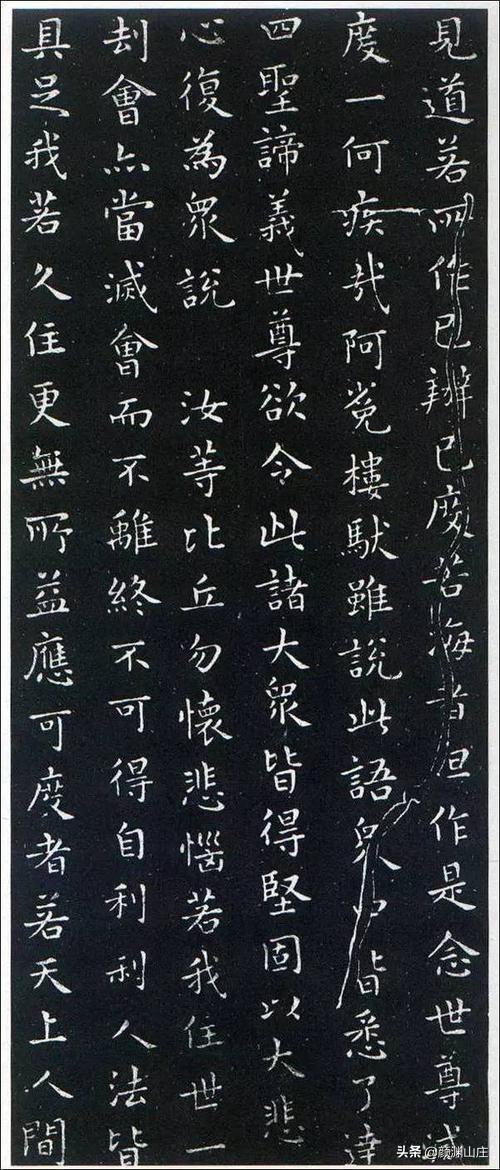 見道若所作已辦已度苦海者但作是念世尊滅
度一何疾哉阿㝹樓馱雖說此語眾中皆悉了達
四聖諦義世尊欲令此諸大眾皆得堅固以大悲
心復為眾說 汝等比丘勿懷悲惱若我住世一
刧會亦當滅會而不離終不可得自利利人法皆
具足我若久住更無所益應可度者若天上人間
头条 @颜渊山庄